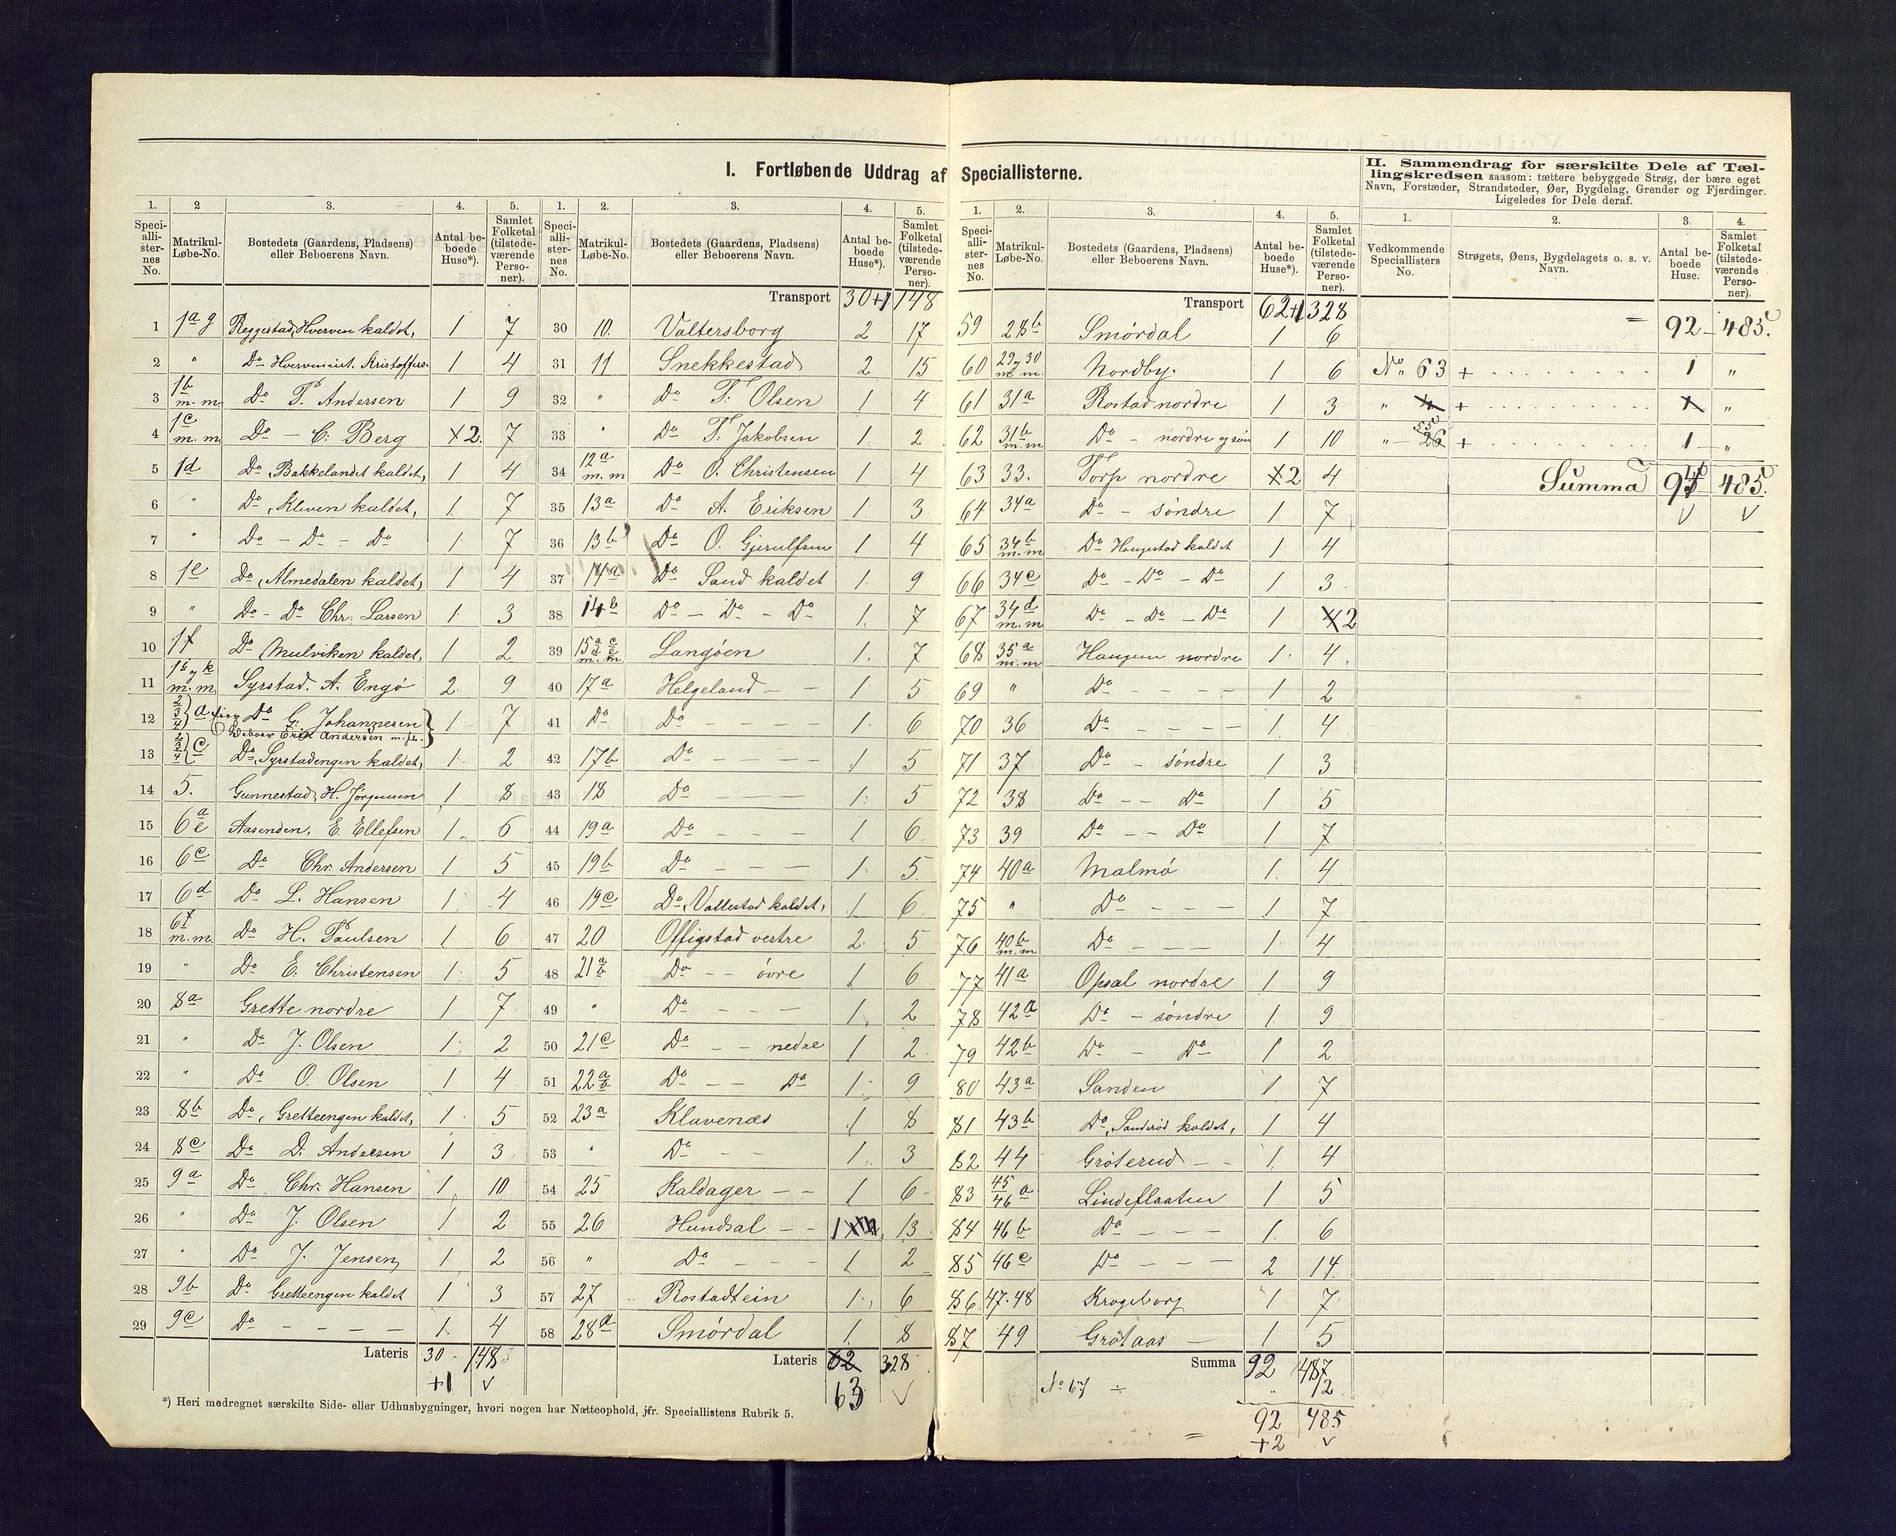 I. Fortløbende Uddrag af Speciallisterne.
II. Sammendrag for særskilte Dele af Tæl-
lingskredsen saasom: tættere bebyggede Strøg, der bære eget
Navn, Forstæder, Strandsteder, Øer, Bygdelag, Grender og Fjerdinger.
Ligeledes for Dele deraf.
1. 2 3. 4. 5.
Speciallisternes No. Matrikul-Løbe-No. Bostedets (Gaardens, Pladsen) eller Beboerens Navn. Antal beboede Huse*). Samlet Folketal (tilstedeværende Personer).
1 1a g Reggestad, Hverven kaldet, 1 7
2 " Do Hvervmint. Kristoffers. 1 4
3 1b m.m. Do T. Andersen 1 9
4 1c m.m Do — C. Berg 2. 7
5 1d Do, Bakkelandet kaldet, 1 4
6 " Do, Kleven kaldet, 1 7
7 " Do — Do — Do 1 7
8 1e Do, Almedalen kaldet, 1 4
9 " Do - Do Chr. Larsen 1 3
10 1f Do Mulviken kaldet, 1 2
11 1h y k m.m. Syrstad. A. Engø 2 9
12 2 3 4 a Do G. Johannesen 1 7
Beboer Erik Andersen m. fl.
13 2 3 4 c Do, Syrstadengen kaldet, 1. 2
14 5. Gunnestad, H. Jørgensen 1 8
15 6a e Aasenden, E. Ellefsen 1. 6
16 6c Do Chr. Andersen 1 5
17 6d Do L. Hansen 1 4
18 6f m.m. Do H. Paulsen 1 6
19 " Do E. Christensen 1. 5
20 8a Grette nordre 1 7
21 " Do J. Olsen 1. 2
22 " Do O. Olsen 1 4
23 8b Do, Gretteengen kaldet, 1. 5
24 8c Do D. Andersen 1 3
25 9a Do Chr. Hansen 1 10
26 " Do J. Olsen 1 2
27 " Do J. Jensen 1 2
28 9b Do Gretteengen kaldet 1 3
29 9c Do — — — — 1. 4
Lateris 30 148
+1
*) Heri medregnet særskilte Side- eller Udhusbygninger, hvori nogen har Natteophold, jfr. Speciallistens Rubrik 5.
1. 2. 3. 4. 5.
Speciallisternes No. Matrikul-Løbe-No. Bostedets (Gaardens, Pladsen) eller Beboerens Navn. Antal beboede Huse*). Samlet Folketal (tilstedeværende Personer).
Transport 30+1 148
30 10. Valtersborg 2 17
31 11 Snekkestad 2 15
32 " Do T. Olsen 1 4
33 " Do T. Jakobsen 1. 2
34 12a m.m Do O. Christensen 1 4
35 13a Do A. Eriksen 1 3
36 13b Do O. Gjerulfsen 1 4
37 14a Do Sand kaldet 1. 9
38 14b Do — Do - Do 1. 7
39 15a c d e m.m. Langøen 1. 7
40 17a Helgeland — — 1 5
41 Do Do — — — — 1. 6
42 17b Do — — — 1 5
43 18 Do — — 1. 5
44 19a Do — — — 1 6
45 19b Do — — — 1. 5
46 19c Do, Vallestad kaldet, 1 6
47 20 Offigstad vestre 2. 5
48 21a b Do — — øvre 1 6
49 " Do — — — 1. 2
50 21c Do — — nedre 1 2
51 22a b Do — — Do 1. 9
52 23a Klavenæs 1 8
53 " Do — — 1. 3
54 25 Kaldager — — 1 6
55 26 Hundsal — — 1 13
56 " Do — — — — 1 2
57 27 Rostadtein 1. 6
58 28a Smørdal 1. 8
Lateris 62 328
63
1. 2. 3. 4. 5.
Speciallisternes No. Matrikul-Løbe-No. Bostedets (Gaardens, Pladsen) eller Beboerens Navn. Antal beboede Huse*). Samlet Folketal (tilstedeværende Personer).
Transport 62+1 328
59 28b Smørdal 1 6
60 29 y 30 m m. Nordby. 1 6
61 31a Rostad nordre 1 3
62 31b m.m Do - nordre og 1 10
63 33. Torp nordre 2 4
64 34a Do - søndre 1 7
65 34b m.m Do Haugstad kaldet 1 4
66 34c Do - Do - Do 1 3
67 34d m.m Do - Do - Do 1 2
68 35a m.m Haugen nordre 1. 4.
69 " Do — — — — 1 2
70 36 Do — — — — 1 4
71 37 Do - søndre 1 3
72 38 Do — — Do 1 5
73 39 Do — — Do 1 7
74 40a Malmø 1. 4
75 " Do — — — 1 7
76 40b m.m Do — — — 1 4
77 41a Opsal nordre 1 9
78 42a Do - søndre 1 9
79 42b Do - Do 1 2
80 43a Sanden 1 7
81 43b Do, Sanderød kaldet, 1 4
82 44 Grøterud — — 1. 4
83 45 46 a Lindeflaaten 1 5
84 46b Do — — — 1. 6
85 46c Do — — — 2 14
86 47-48 Krogeborg 1 7
87 49 Grøtaas — 1 5
Summa 92 487
No 67 ÷ " /2
92 485
+2
1. 2. 3. 4.
Vedkommende Speciallisters No. Strøgets, Øens, Bygdelagets o. s. v. Navn. Antal beboede Huse. Samlet Folketal (tilstedeværende Personer).
= 92 — 485.
No 63 + . . . . . . . . . 1 "
" 4 + . . . . . . . . . 1 "
" 55 26 + . . . . . . . . 1 "
Summa 94 485.